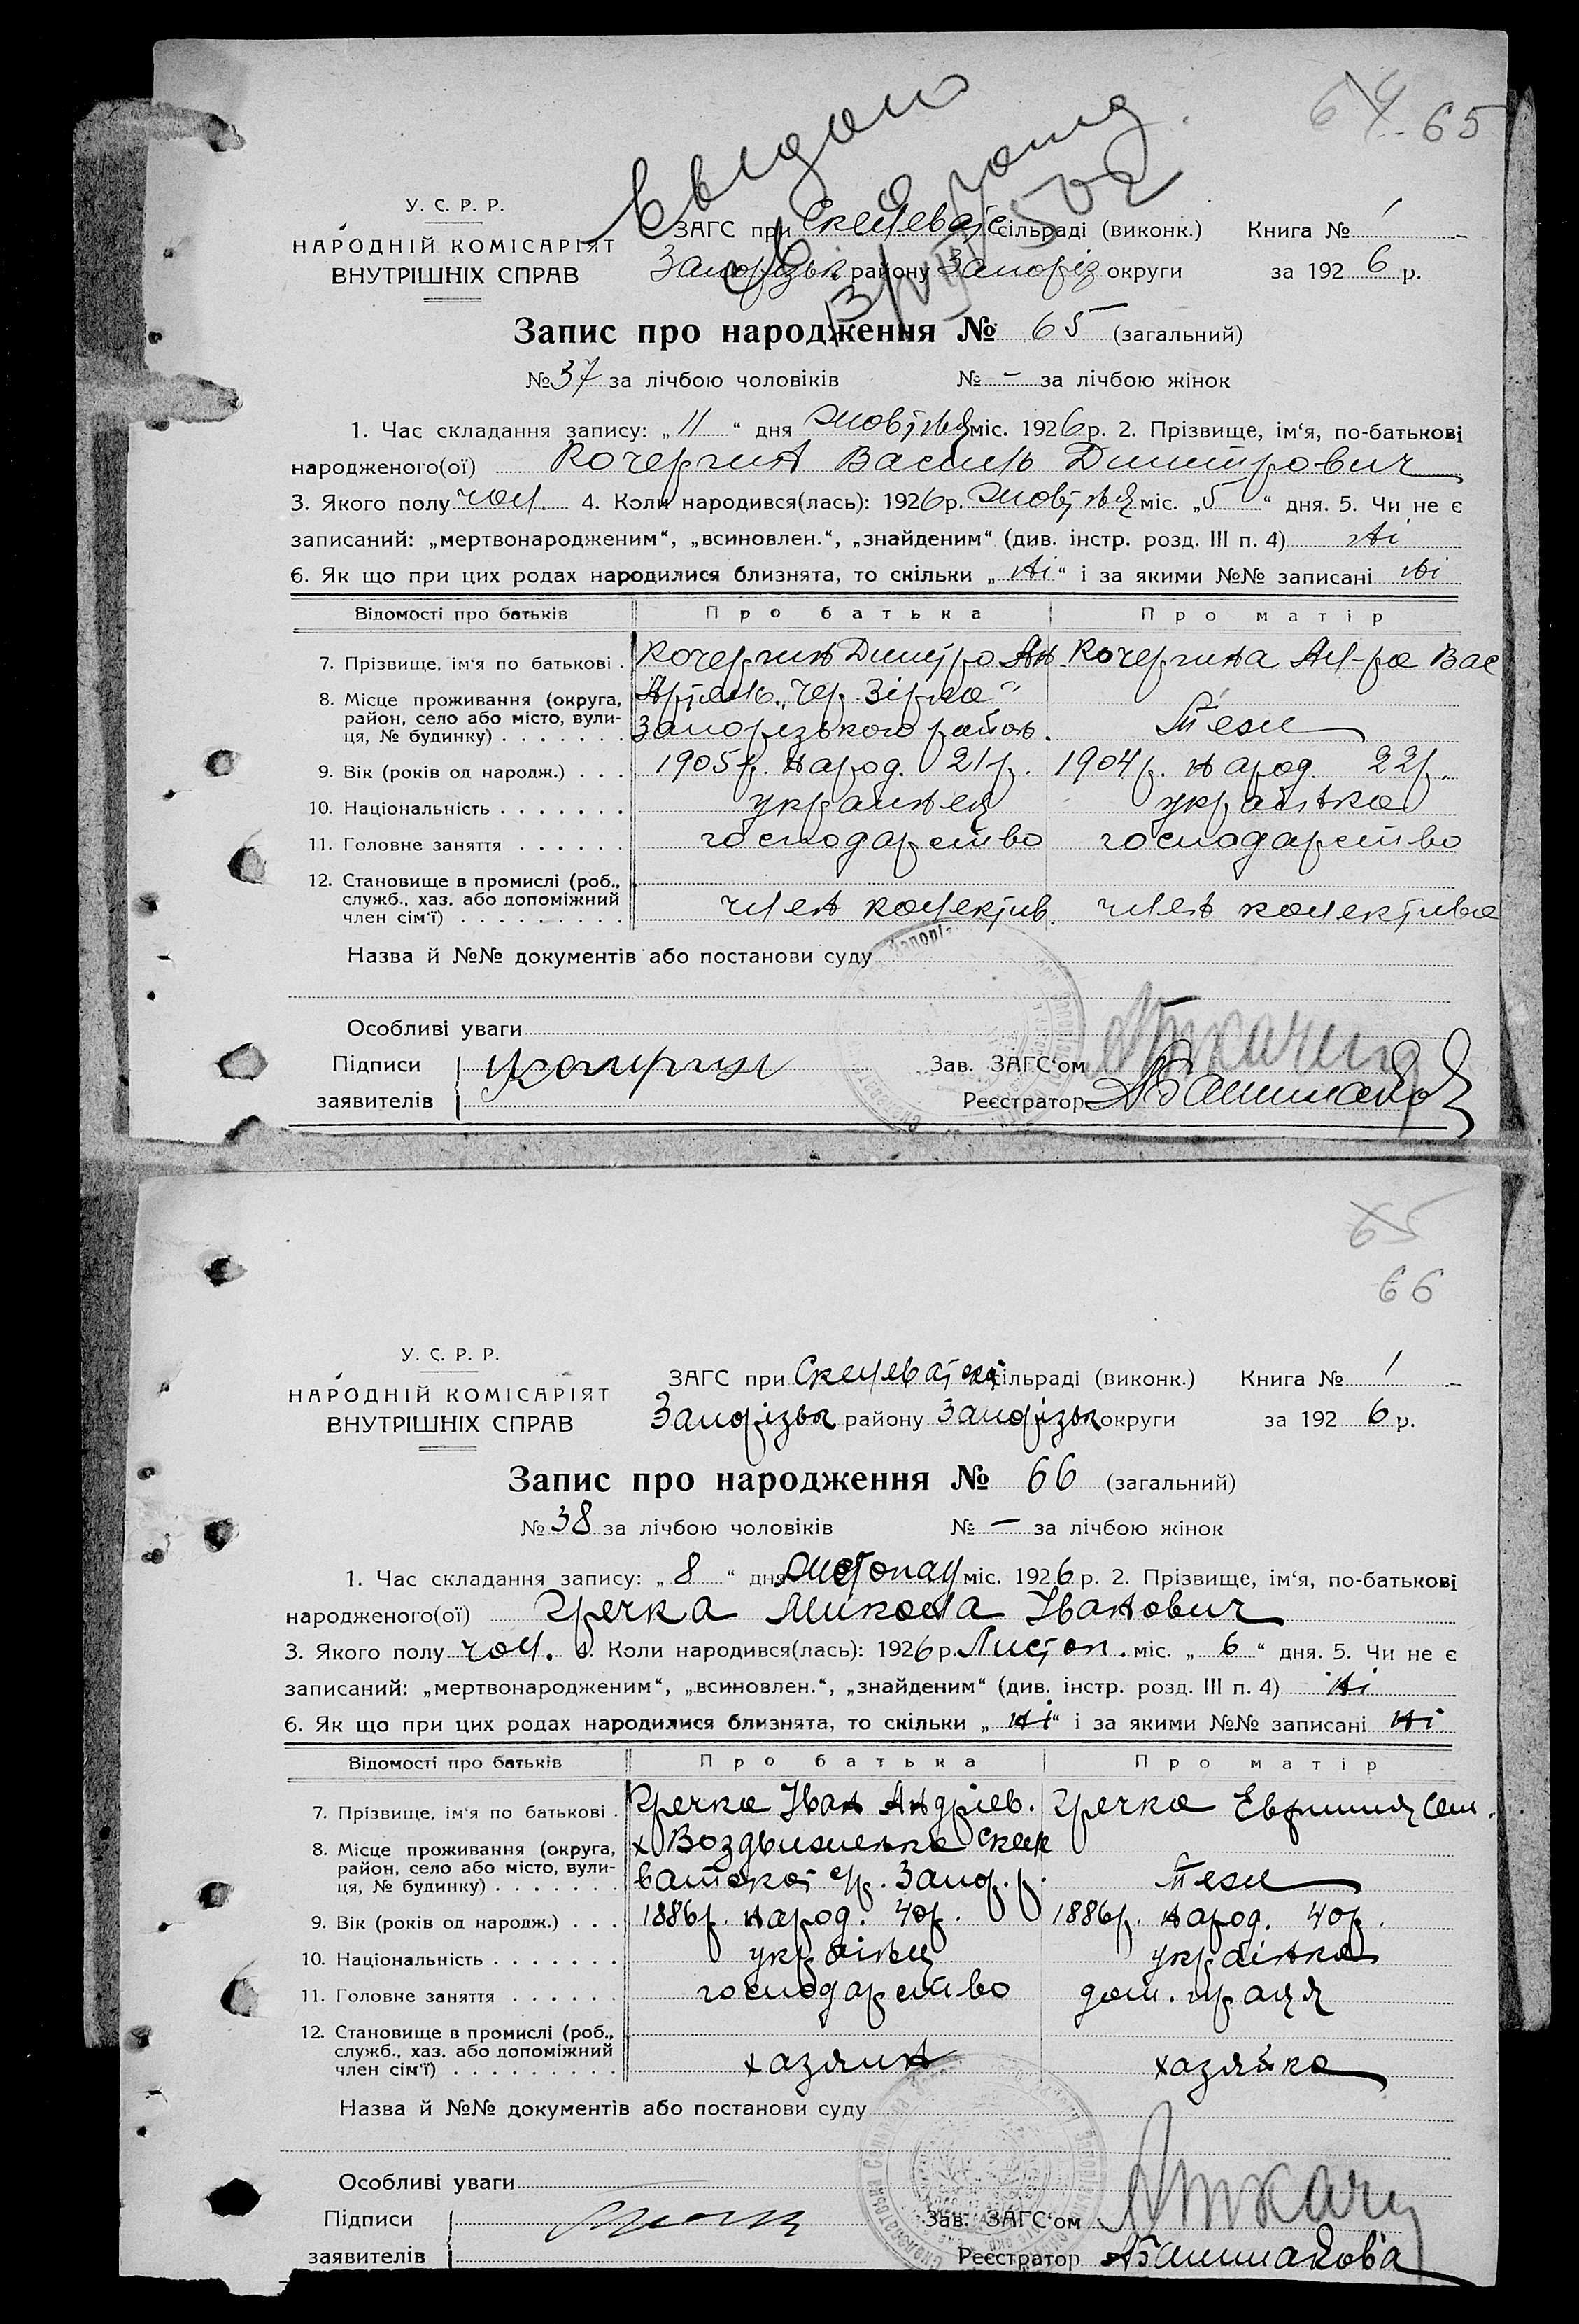 64 65
У. С. Р. Р.
НАРОДНІЙ КОМІСАРІЯТ
ВНУТРІШНІХ СПРАВ
ЗАГС при Скелеватс сільраді (виконк.) Книга № 1
Запорізьк району Запоріз округи за 192 6 р.
Запис про народження № 65 (загальний)
№ 37 за лічбою чоловіків № – за лічбою жінок
1. Час складання запису: „ 11 “ дня жовтня міс. 1926 р. 2. Прізвище, ім‘я, по-батькові
народженого(ої) Кочергин Василь Димитрович
3. Якого полу чол. 4. Коли народився(лась): 1926 р. жовтня міс. „ 5 “ дня. 5. Чи не є
записаний: „мертвонародженим“, „всиновлен.“, „знайденим“ (див. інстр. розд. III п. 4) ні
6. Як що при цих родах народилися близнята, то скільки „ ні “ і за якими №№ записані ні
Відомості про батьків Про батька Про матір
7. Прізвище, ім‘я по батькові . Кочергин Дмитро Ан. Кочергина Ал-ра Вас
8. Місце проживання (округа, Артель „Чер. Зірка“
район, село або місто, вули- Запорізького район. Теж
ця, № будинку) . . . . . . .
9. Вік (років од народж.) . . . 1905 р. народ. 21 р. 1904 р. народ. 22 р.
10. Національність . . . . . . . українец українка
11. Головне заняття . . . . . . господарство господарство
12. Становище в промислі (роб.,
служб., хаз. або допоміжний член колектив. член колектива
член сім‘ї) . . . . . . . . .
Назва й №№ документів або постанови суду
Особливі уваги
Підписи Зав. ЗАГС‘ом
заявителів Реєстратор
65
66
У. С. Р. Р.
НАРОДНІЙ КОМІСАРІЯТ
ВНУТРІШНІХ СПРАВ
ЗАГС при Скелеватск сільраді (виконк.) Книга № 1
Запорізьк району Запорізьк округи за 192 6 р.
Запис про народження № 66 (загальний)
№ 38 за лічбою чоловіків № – за лічбою жінок
1. Час складання запису: „ 8 “ дня Листопад міс. 1926 р. 2. Прізвище, ім‘я, по-батькові
народженого(ої) Гречка Микола Іванович
3. Якого полу чол. 4. Коли народився(лась): 1926 р. Листоп. міс. „ 6 “ дня. 5. Чи не є
записаний: „мертвонародженим“, „всиновлен.“, „знайденим“ (див. інстр. розд. III п. 4) ні
6. Як що при цих родах народилися близнята, то скільки „ ні “ і за якими №№ записані ні
Відомості про батьків Про батька Про матір
7. Прізвище, ім‘я по батькові . Гречка Іван Андріев. Гречка Евфимия Сем.
8. Місце проживання (округа, х Воздвиженка Скеле
район, село або місто, вули- ватскої с/р. Запор. р. Теж
ця, № будинку) . . . . . . .
9. Вік (років од народж.) . . . 1886 р. народ. 40 р. 1886 р. народ. 40 р.
10. Національність . . . . . . . українц українка
11. Головне заняття . . . . . . господарство дом. праця
12. Становище в промислі (роб.,
служб., хаз. або допоміжний хазяин хазяйка
член сім‘ї) . . . . . . . . .
Назва й №№ документів або постанови суду
Особливі уваги
Підписи Зав. ЗАГС‘ом
заявителів Реєстратор